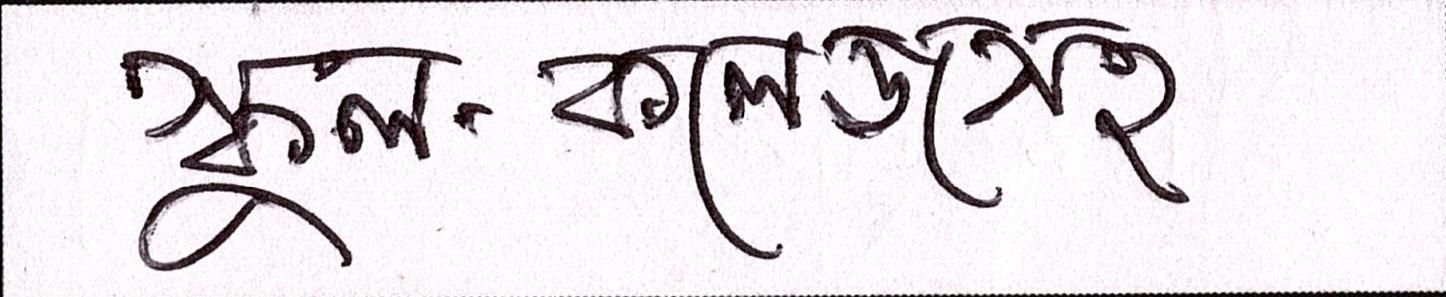 স্কুল-কলেজসহ